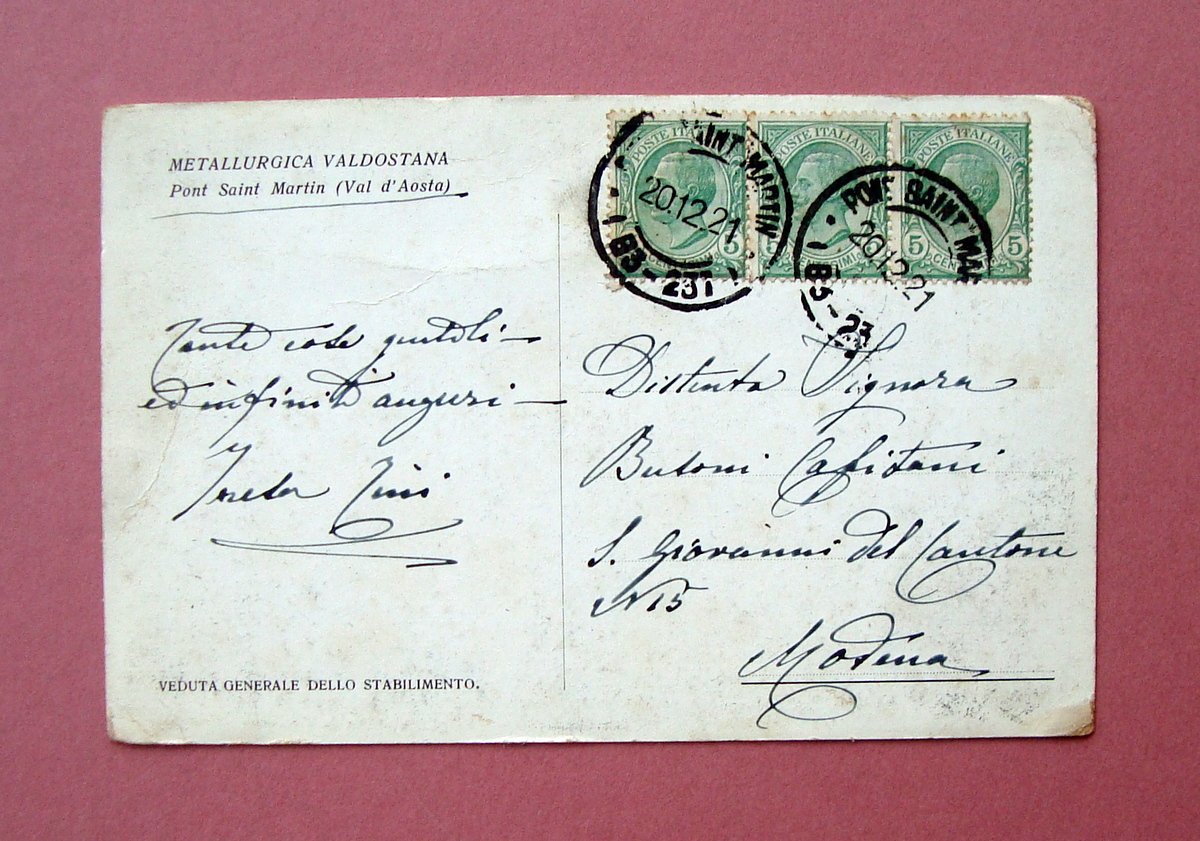 METALLURGICA VALDOSTANA
Pont Saint Martin (Val d'Aosta)
POSTE ITALIANE
POSTE ITALIANE
POSTE ITALIANE
5
5
5 5
SAINT MARTIN
20.12.21
83-237
PONT SAINT MAR
20.12.21
83-23
Tante cose gentili
ed infiniti auguri
Tini
Distinta Signora
Butoni Capitani
S. Giovanni del Cantone
N 15
Modena
VEDUTA GENERALE DELLO STABILIMENTO.